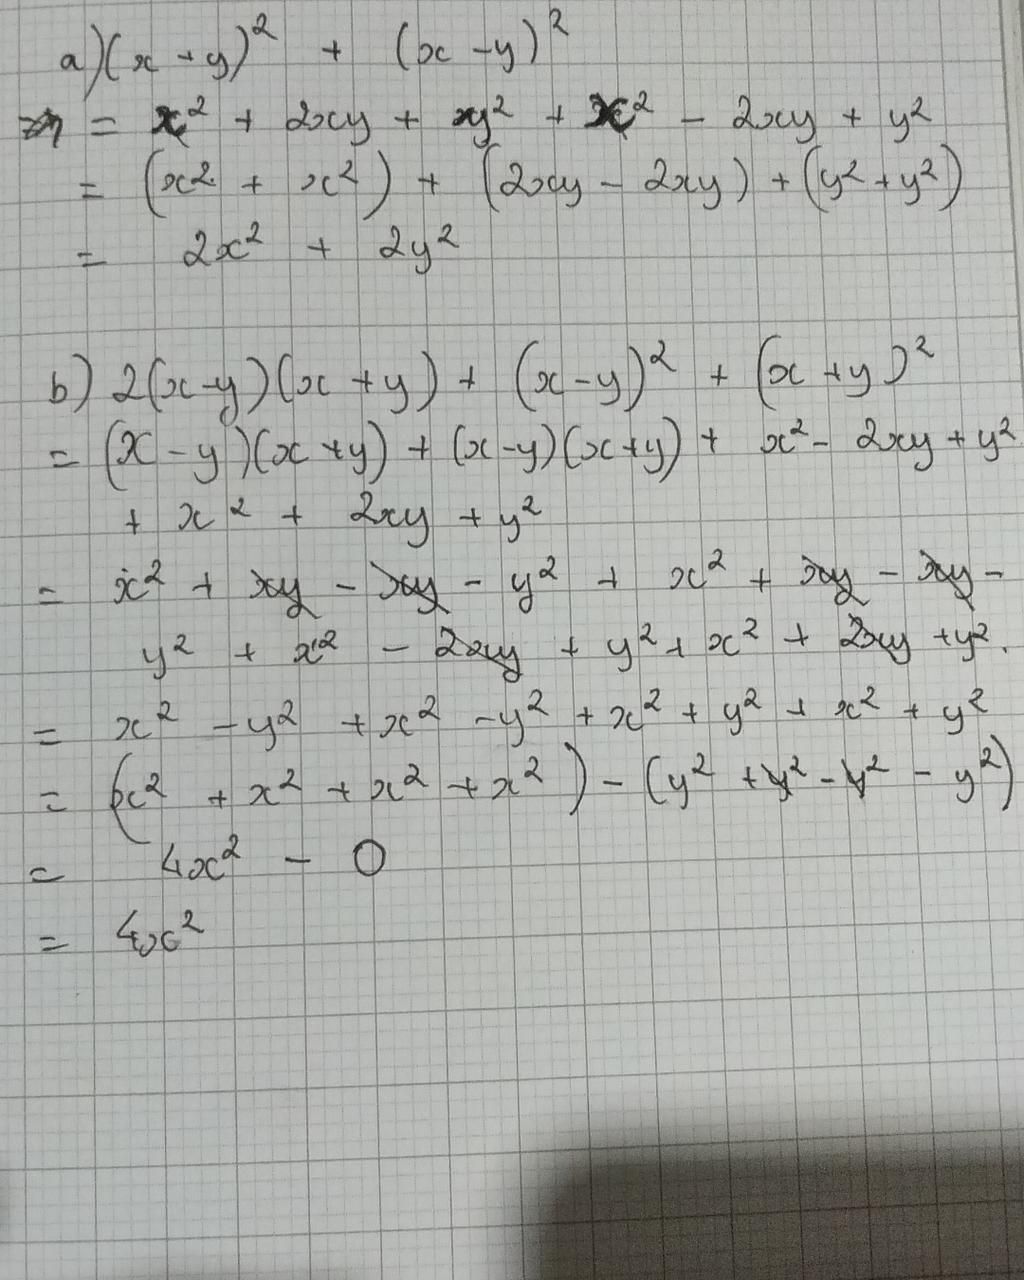 a) (x + y)² + (x - y)²
= x² + 2xy + y² + x² - 2xy + y²
= (x² + x²) + (2xy - 2xy) + (y² + y²)
= 2x² + 2y²
b) 2(x-y)(x+y) + (x-y)² + (x+y)²
= (x-y)(x+y) + (x-y)(x+y) + x² - 2xy + y²
+ x² + 2xy + y²
= x² + xy - xy - y² + x² + xy - xy -
y² + x² - 2xy + y² + x² + 2xy + y².
= x² - y² + x² - y² + x² + y² + x² + y²
= (x² + x² + x² + x²) - (y² + y² - y² - y²)
= 4x² - 0
= 4x²